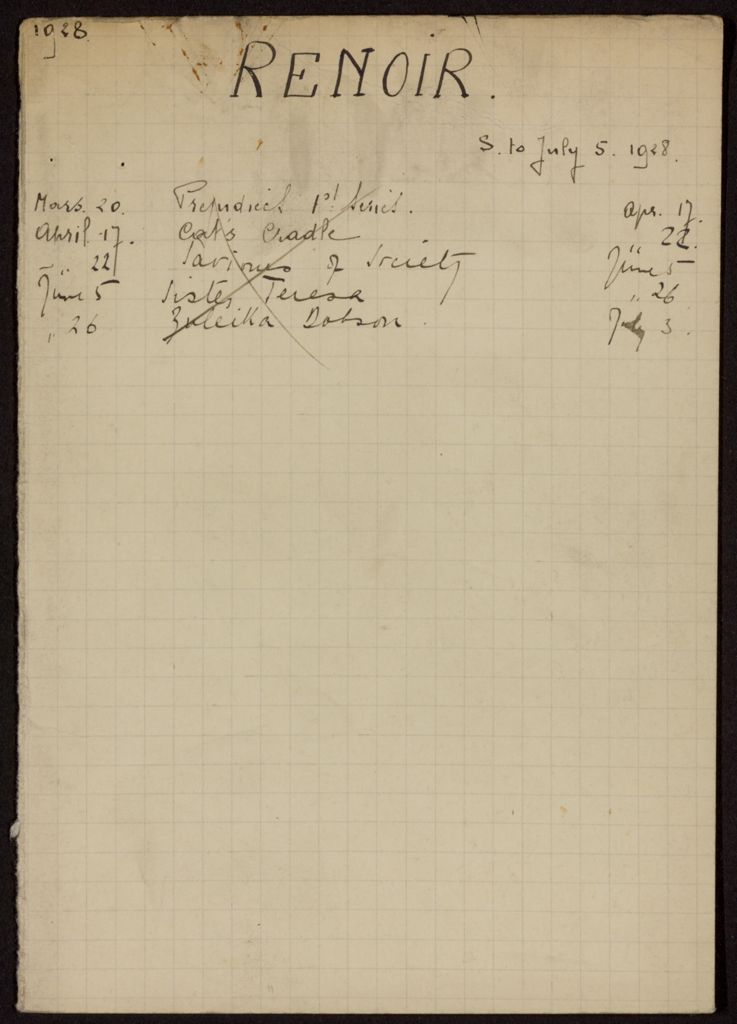 1928
RENOIR.
S. to July 5. 1928.
Mars. 20. Prejudices 1st Series. Apr. 17.
April 17. Cat's Cradle " 22.
" 22 Saviours of Society June 5
June 5 Sister Teresa " 26
" 26 Zuleika Dobson. July 3.